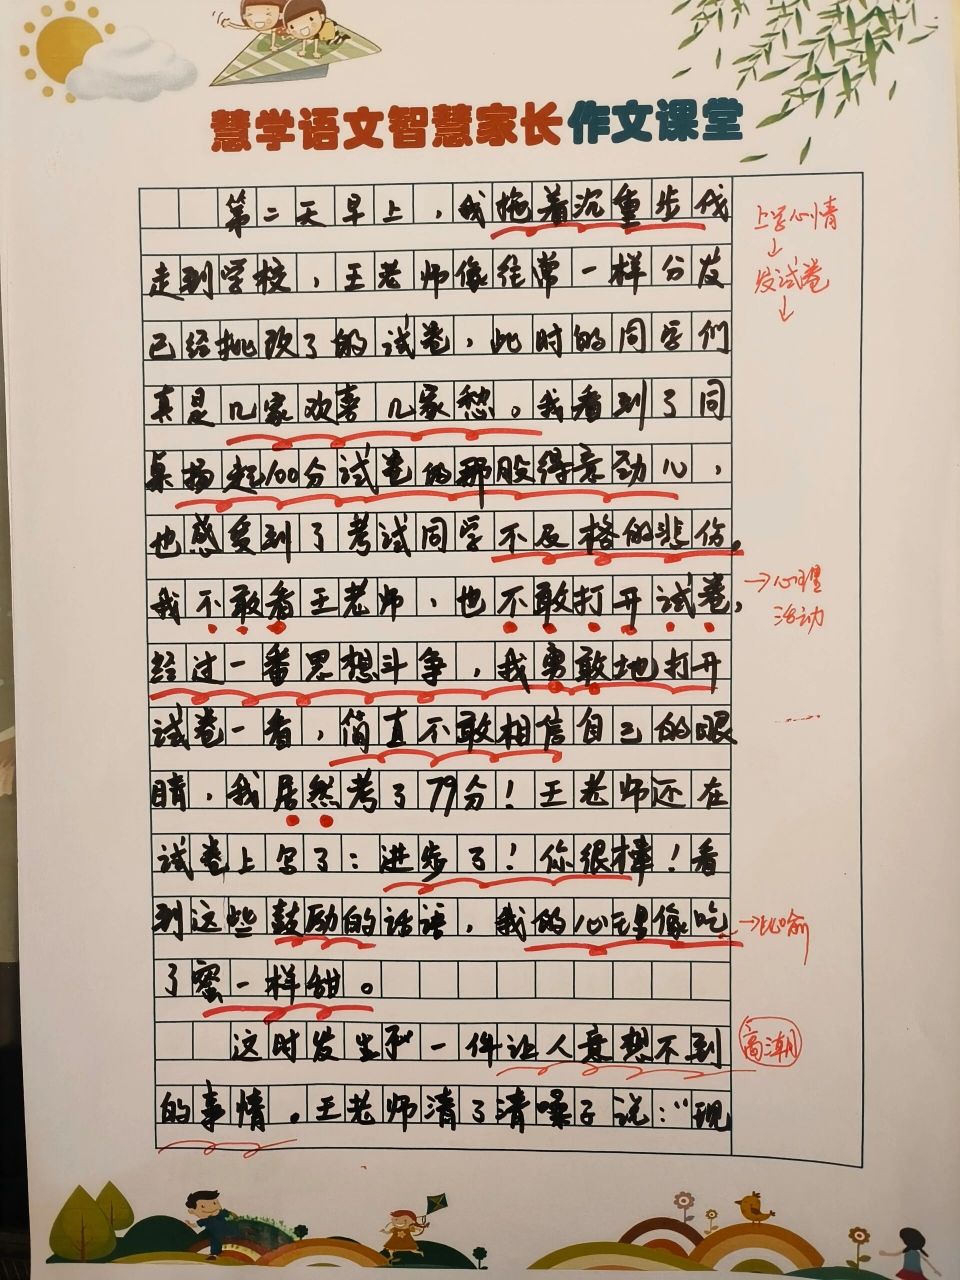 慧学语文智慧家长作文课堂
第二天早上，我拖着沉重步伐
走到学校，王老师像往常一样分发
已经批改了的试卷，此时的同学们
真是几家欢喜几家愁。我看到了同
桌扬起100分试卷的那股得意劲儿，
也感受到了考试同学不及格的悲伤。
我不敢看王老师，也不敢打开试卷，
经过一番思想斗争，我勇敢地打开
试卷一看，简直不敢相信自己的眼
睛，我居然考了79分！王老师还在
试卷上写了：进步了！你很棒！看
到这些鼓励的话语，我的心里像吃
了蜜一样甜。
这时发生了一件让人意想不到
的事情。王老师清了清嗓子说：“现
上学心情
↓
发试卷
↓
→心理
活动
→比喻
高潮